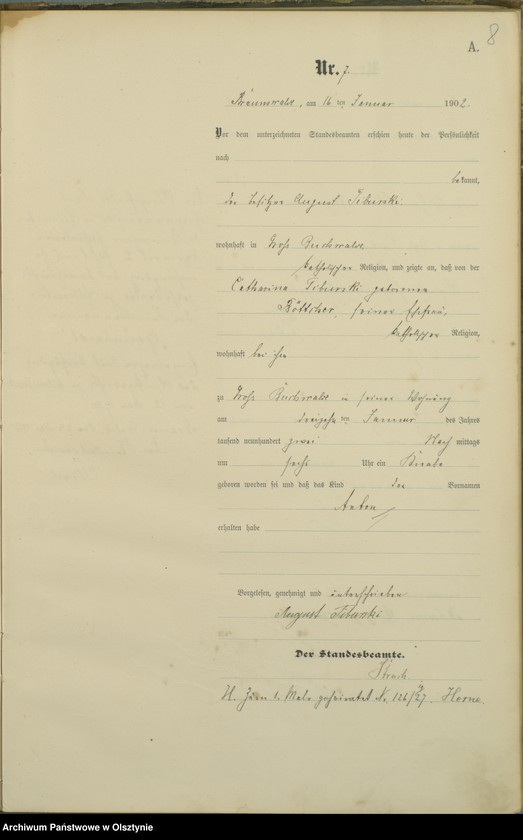 8
A.
Nr. 7
Braunswalde, am 16 ten Januar 1902.
Vor dem unterzeichneten Standesbeamten erschien heute der Persönlichkeit
nach
bekannt,
der Besitzer August Tiburski
wohnhaft in Groß Buchwalde
katholischer Religion, und zeigte an, daß von der
Catharina Tiburski geborenen
Böttcher, seiner Ehefrau,
katholischer Religion,
wohnhaft bei ihm
zu Groß Buchwalde in seiner Wohnung
am dreizehn ten Januar des Jahres
tausend neunhundert zwei Nach mittags
um sechs Uhr ein Knabe
geboren worden sei und daß das Kind den Vornamen
Anton
erhalten habe
Vorgelesen, genehmigt und unterschrieben
August Tiburski
Der Standesbeamte.
H. Zum 1. Male geheiratet Nr. 126/27. Herne.
Archiwum Państwowe w Olsztynie